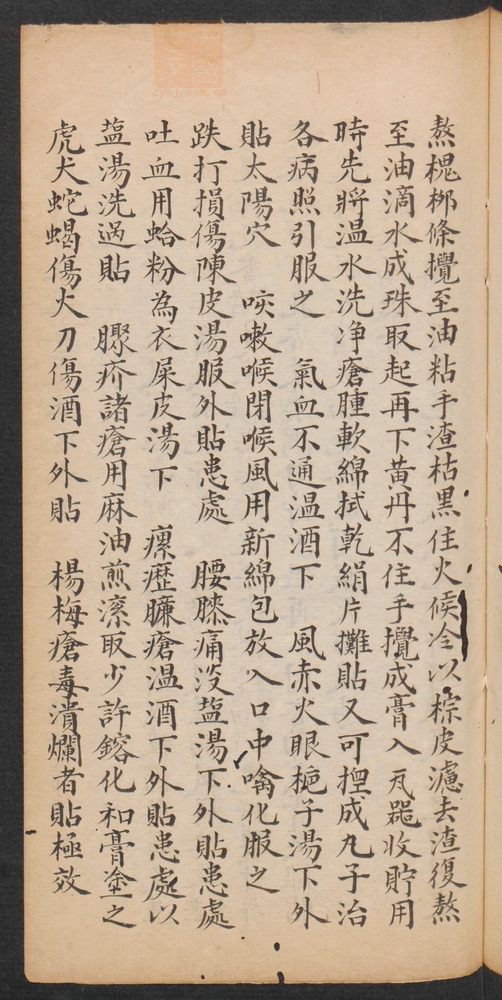 熬槐栁條攪至油粘手渣枯黑住火候冷以棕皮濾去渣復熬
至油滴水成珠取起再下黃丹不住手攪成膏入瓦噐收貯用
時先將温水洗净瘡腫軟綿拭乾絹片攤貼又可捏成丸子治
各病照引服之　氣血不通温酒下　風赤火眼栀子湯下外
貼太陽穴　咳嗽喉閉喉風用新綿包放入口中噙化服之
跌打損傷陳皮湯服外貼患處　腰膝痛沒盐湯下外貼患處
吐血用蛤粉為衣屎皮湯下　瘰癧臁瘡温酒下外貼患處以
盐湯洗過貼　膿疥諸瘡用麻油煎滚取少許鎔化和膏塗之
虎犬蛇蝎傷火刀傷酒下外貼　楊梅瘡毒潰爛者貼極效